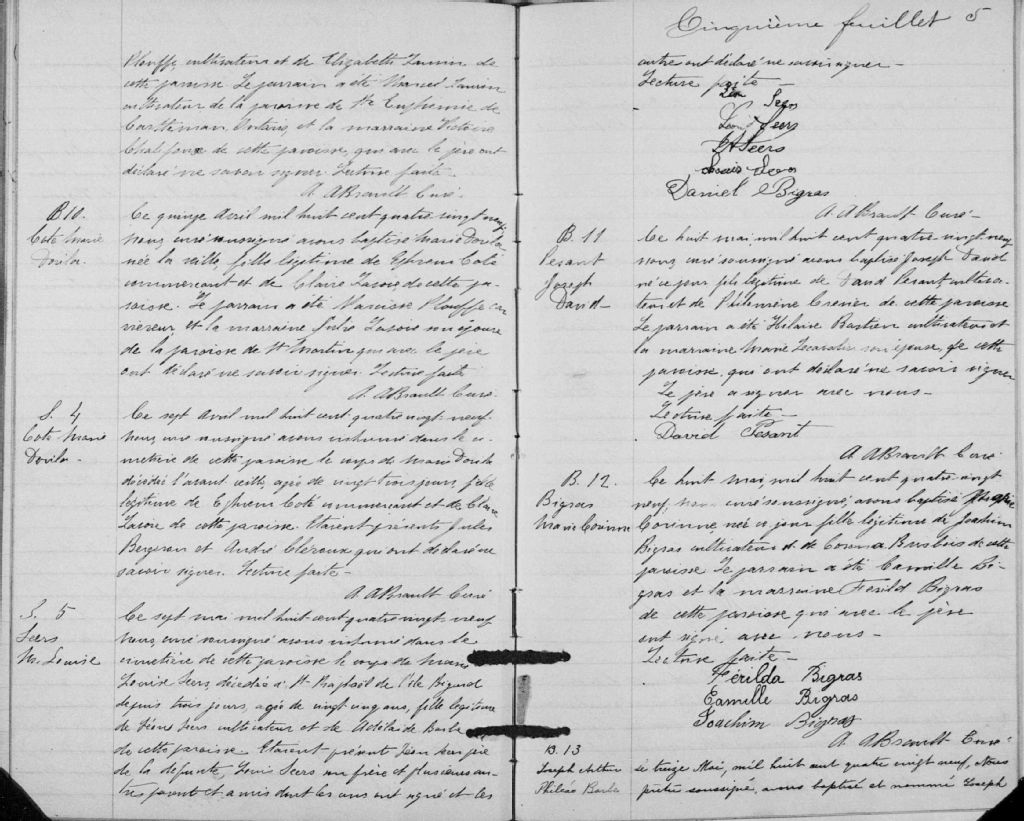 Plouffe, cultivateur et de Elizabeth Lauzin de
cette paroisse. Le parrain a été Marcel
cultivateur de la paroisse de Ste Euphemie de
Casselman, Ontario, et la marraine Victoire
de cette paroisse, qui avec le père ont
déclaré ne savoir signer. Lecture faite.
A. A. Brault Curé.
B 10.
Coté Marie
Dorila.
Ce quinze Avril mil huit cent quatre vingt neuf,
Nous, curé soussigné avons baptisé Marie Dorila
née la veille, fille légitime de Ephrem Coté
commercant et de Claire Lavoie de cette pa-
roisse. Le parrain a été Narcisse Plouffe
et la marraine Lavoie son épouse
de la paroisse de St Martin qui avec le père
ont déclaré ne savoir signer. Lecture faite
A. A. Brault Curé
S. 4
Coté Marie
Dorila.
Ce sept mil huit cent quatre vingt neuf.
Nous, curé soussigné avons inhumé dans le ci-
metière de cette paroisse le corps de Marie Dorila
décédée l'avant veille, agée de vingt trois jours, fille
légitime de Ephrem Coté commercant et de Claire
Lavoie de cette paroisse. Étaient présents Jules
Bergeron et André Cleroux qui ont déclaré ne
savoir signer. Lecture faite -
A. A. Brault Curé
S. 5
Seers
M. Louise
Ce sept mai mil huit cent quatre vingt neuf
Nous, curé soussigné avons inhumé dans le
cimetière de cette paroisse le corps de Marie
Louise Seers, décédée à St Raphaël de l'île Bizard
depuis trois jours, agée de vingt cinq ans, fille légitime
de Seers cultivateur et de Adélaide
de cette paroisse. Étaient présent Jean Seers père
de la défunte, Louis Seers son frère et plusieurs au-
tres parents et amis dont les uns ont signé et les
Cinquième feuillet 5
autres ont déclaré ne savoir signer -
Lecture faite -
Seers
Seers
Seers
Louis Seers
Daniel Bigras
A. A. Brault Curé -
B. 11
Pesant
Joseph
David -
Ce huit mai, mil huit cent quatre vingt neuf
Nous curé soussigné avons baptisé Joseph David
né ce jour fils légitime de David Pesant cultiva-
teur et de Philomène Crevier de cette paroisse
Le parrain a été Hilaire Bastien cultivateur et
la marraine Marie Lecavalier son épouse, de cette
paroisse, qui ont déclaré ne savoir signer
Le père a signer avec nous -
Lecture faite -
David Pesant
A. A. Brault Curé
B. 12.
Bigras
Marie Corinne
Ce huit mai, mil huit cent quatre vingt
neuf, nous curé soussigné avons baptisé
Corinne, née ce jour fille légitime de Joachim
Bigras cultivateur et de Cosima Brisbois de cette
paroisse. Le parrain a été Camille Bi-
gras et la marraine Férild Bigras
de cette paroisse qui avec le père
ont signé avec nous -
Lecture faite -
Férilda Bigras
Camille Bigras
Joachim Bigras
A. A. Brault Curé
B. 13
Joseph Arthur
Philéas
Le treize Mai, mil huit cent quatre vingt neuf, Nous
prêtre soussigné, avons baptisé et nommé Joseph